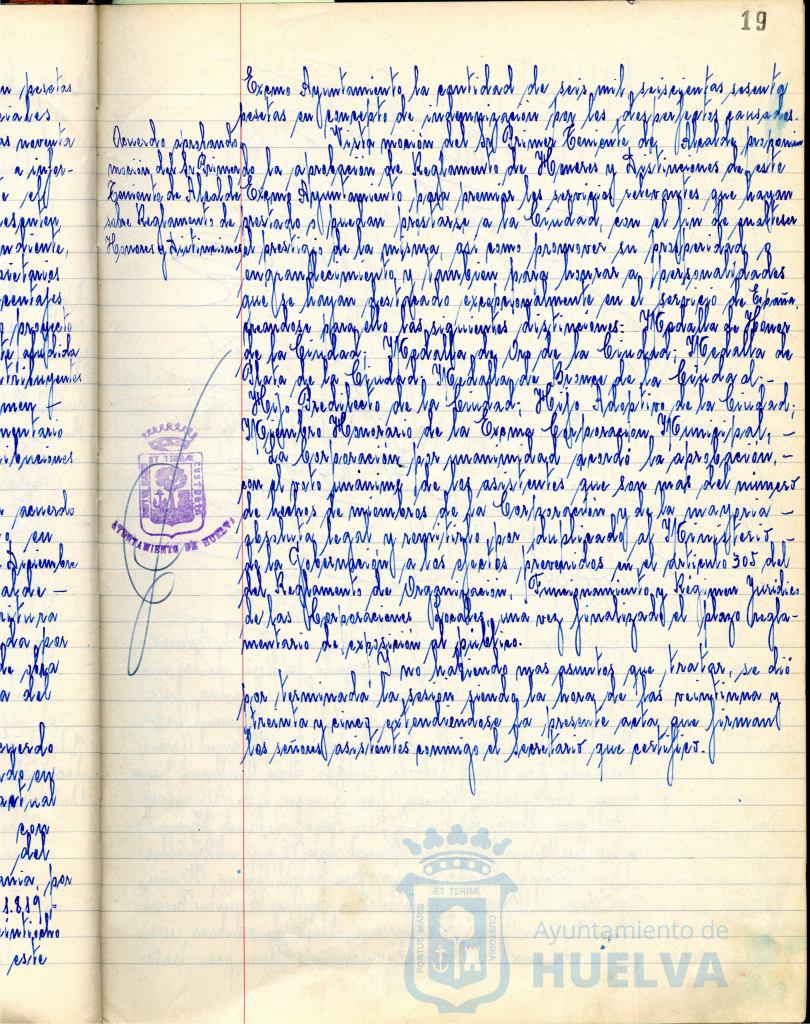 19
Excmo Ayuntamiento la cantidad de seis mil seiscientas sesenta
pesetas en concepto de indemnización por los desperfectos causados.
Vista moción del Sr Primer Teniente de Alcalde proponien
do la aprobación de Reglamento de Honores y Distinciones de este
Excmo Ayuntamiento para premiar los servicios relevantes que hayan
prestado o puedan prestarse a la Ciudad, con el fin de enaltecer
el prestigio de la misma, asi como promover su prosperidad y
engrandecimiento y tambien para honrar a personalidades
que se hayan destacado excepcionalmente en el servicio de España,
creandose para ello las siguientes distinciones: Medalla de Honor
de la Ciudad; Medalla de Oro de la Ciudad; Medalla de
Plata de la Ciudad; Medalla de Bronce de la Ciudad.-
Hijo Predilecto de la Ciudad; Hijo Adoptivo de la Ciudad;
Miembro Honorario de la Excma Corporación Municipal.-
La Corporación por unanimidad acordó la aprobación,-
con el voto unánime de los asistentes que son mas del número
de hechos de miembros de la Corporación y de la mayoria -
absoluta legal y remitirlo por duplicado al Ministerio -
de la Gobernación a los efectos prevenidos en el articulo 305 del
del Reglamento de Organización, Funcionamiento y Régimen Juridico
de las Corporaciones Locales, una vez finalizado el plazo regla-
mentario de exposición al público.
Y no habiendo mas asuntos que tratar, se dió
por terminada la sesion siendo la hora de las veintiuna y
treinta y cinco extendiendose la presente acta que firman
los señores asistentes conmigo el Secretario que certifico.
Acuerdo aprobando
moción del Sr Primer
Teniente de Alcalde
sobre Reglamento de
Honores y Distinciones
ET TERRÆ
CUSTODIA
AYUNTAMIENTO DE HUELVA
pesetas
noventa
e infor-
proyecto
aludida
acuerdo
en
Diciembre
por
del
acuerdo
en
con
del
por
1.819
este
ET TERRÆ
PORTUS MARIS
CUSTODIA
Ayuntamiento de
HUELVA